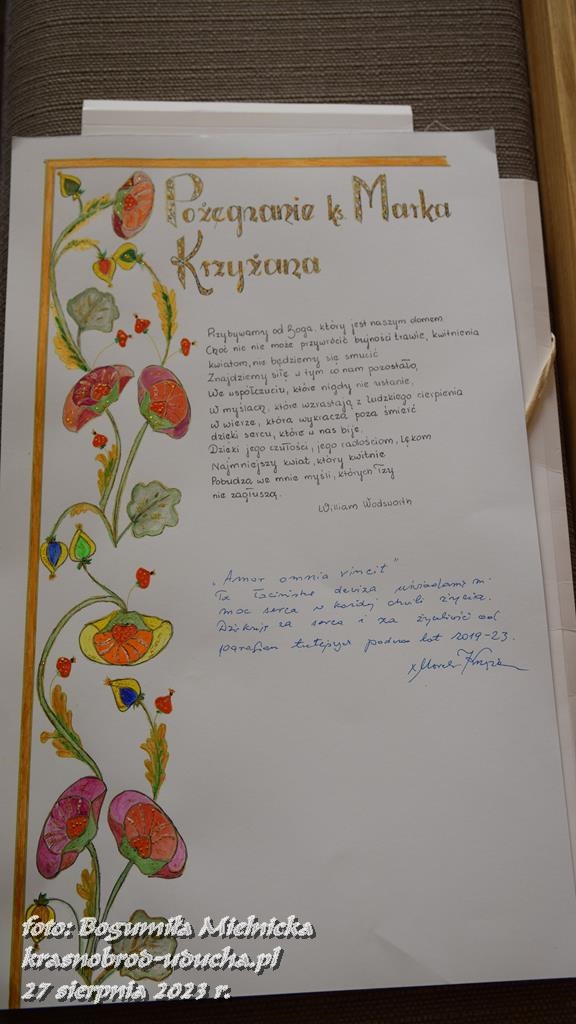 Pożegnanie ks. Marka
Krzyżana
Przybywamy od Boga, który jest naszym domem
Choć nic nie może przywrócić bujności trawie, kwitnienia
kwiatom, nie będziemy się smucić
Znajdziemy siłę w tym co nam pozostało,
We współczuciu, które nigdy nie ustanie,
W myślach, które wzrastają z ludzkiego cierpienia
W wierze, która wykracza poza śmierć
dzięki sercu, które w nas bije.
Dzięki jego czułości, jego radościom, lękom
Najmniejszy kwiat, który kwitnie
Pobudza we mnie myśli, których łzy
nie zagłuszą.
William Wodsworth
"Amor omnia vincit"
Ta łacińska dewiza uświadamia mi
moc serca w każdej chwili życia.
Dziękuję za serca i za życzliwość od
parafian tutejszych podczas lat 2019-23.
x Marek
foto: Bogumiła Mielnicka
krasnobrod-uducha.pl
27 sierpnia 2023 r.